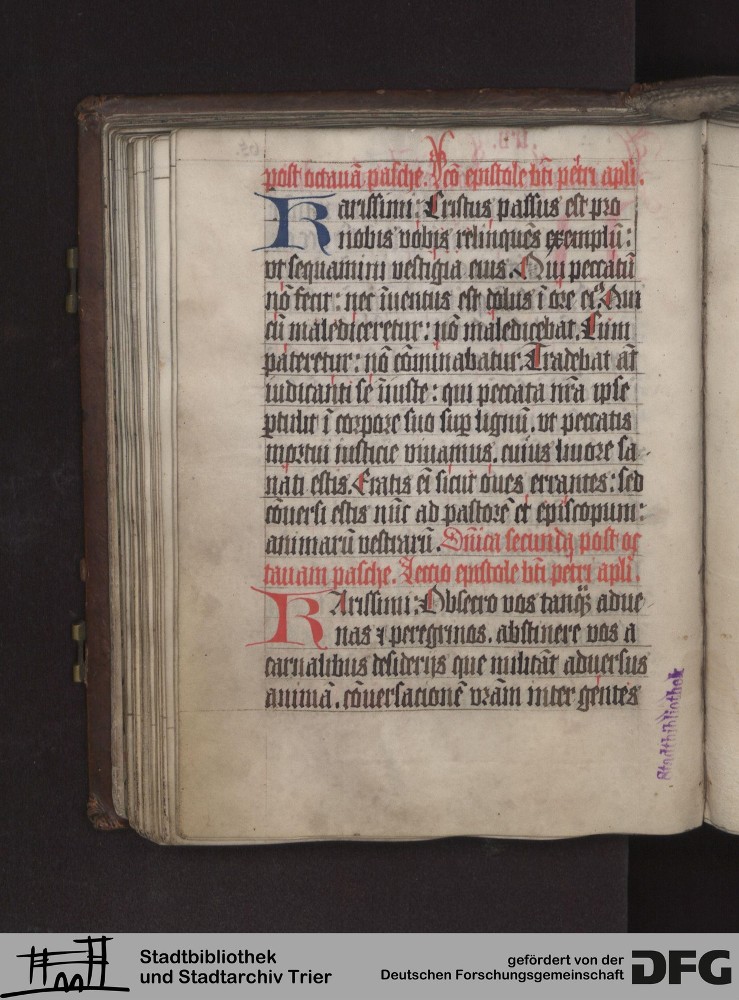 post octauā pasche. Lcō epistole bti petri apli.
Karissimi: Cristus passus est pro
nobis vobis relinquēs exemplū:
vt sequamini vestigia eius. Qui peccatū
nō fecit: nec īuentus est dolus ī ore eiꝰ. Qui
cū malediceretur: nō maledicebat. Cum
pateretur: nō cōminabatur. Tradebat aūt
iudicanti se īiuste: qui peccata nr̄a ipse
ꝑtulit ī corpore suo sup lignū. vt peccatis
mortui iusticie viuamus. cuius liuore sa
nati estis. Eratis eī sicut oues errantes: sed
cōuersi estis nūc ad pastorē et episcopum:
animarū vestrarū. Dn̄ica secunda post oc
tauam pasche. Leccio epistole bti petri apli.
KArissimi: Obsecro vos tanꝙ̄ adue
nas ⁊ peregrinos. abstinere vos a
carnalibus desiderijs que militāt aduersus
animā. cōuersacionē vr̄am inter gentes
Stadtbibliothek
Stadtbibliothek
und Stadtarchiv Trier
gefördert von der
Deutschen Forschungsgemeinschaft
DFG